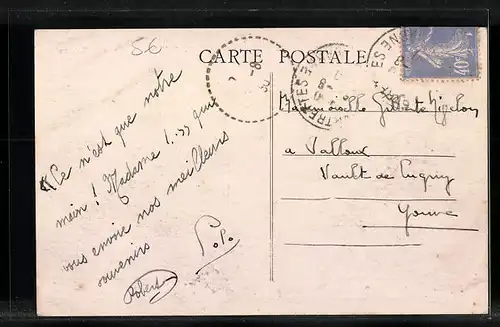 5€
CARTE POSTALE
«Ce n'est que notre
main ! Madame !..» qui
vous envoie nos meilleurs
souvenirs
Popo
Robert
Mademoiselle
a Valloux
Vault de Lugny
Yonne
40c